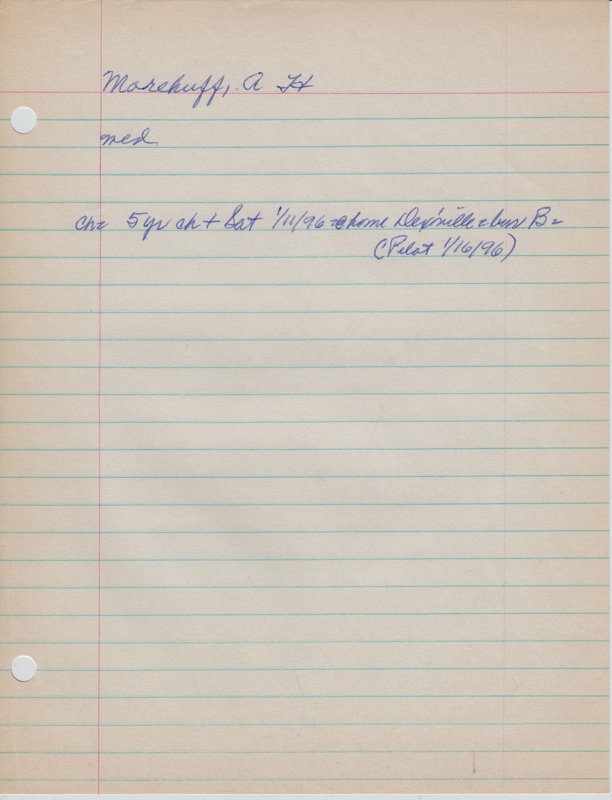 Morehuff, A H
med.
ch= 5 yr ch + Sat 1/11/96 = @ home Dex'ville = bur B =
(Pilot 1/16/96)